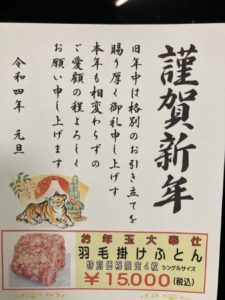 謹賀新年
旧年中は格別のお引き立てを
賜り厚く御礼申し上げす
本年も相変わらずの
ご愛顧の程よろしく
お願い申し上げます
令和四年 元旦
お年玉大奉仕
羽毛掛けふとん
特別価格限定4枚 シングルサイズ
￥15,000(税込)